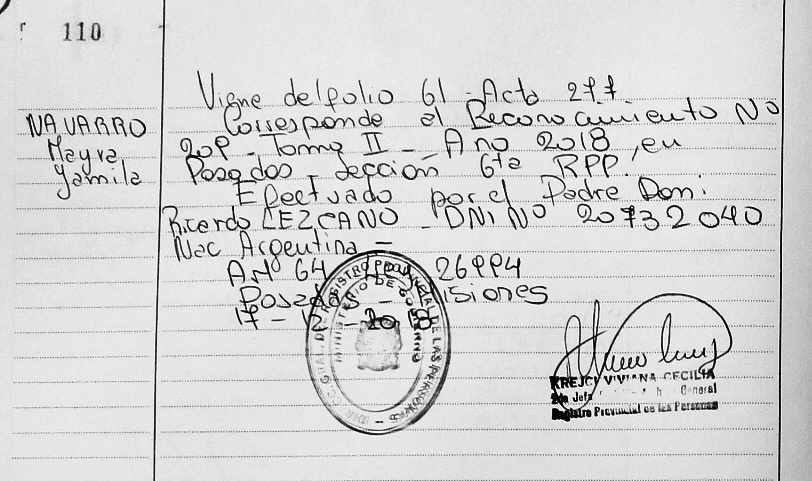 110
NAVARRO
Mayra
Yamila
Viene del folio 61 - Acta 277
Corresponde el Reconocimiento No
209 - Tomo II - Ano 2018, en
Posadas - Sección 6ta RPP.
Efectuado por el Padre Don:
Ricardo LEZCANO - DNI Nº 20732040
Nac Argentina -
A Nº 64 26994
Posadas - isiones
17 - 12 - 2018
DIRECC. GRAL. DEL REGISTRO PROVINCIAL DE LAS PERSONAS
MINISTERIO DE GOBIERNO
KREJCI VIVIANA CECILIA
2da Jefa General
Registro Provincial de las Personas